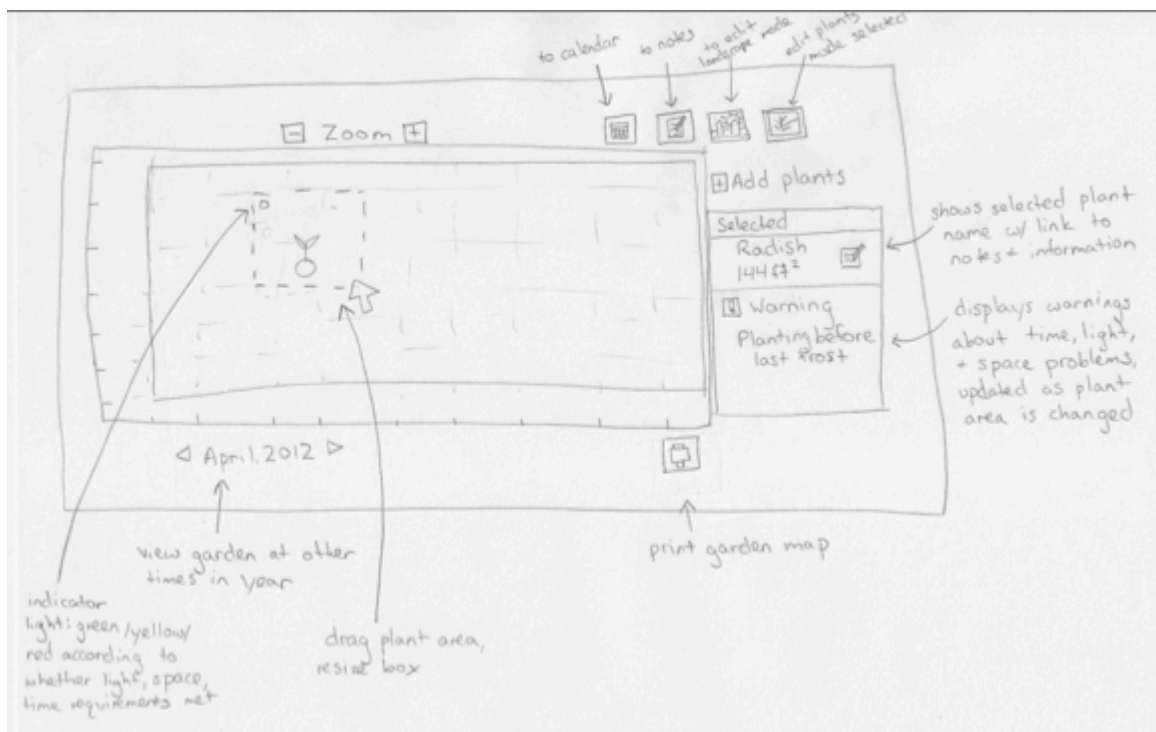 to calendar
to notes
to edit
landscape mode
edit plants
mode selected
- Zoom +
+ Add plants
Selected
Radish
144 ft²
! Warning
Planting before
last frost
shows selected plant
name w/ link to
notes + information
displays warnings
about time, light,
+ space problems,
updated as plant
area is changed
April, 2012
view garden at other
times in year
print garden map
indicator
light: green/yellow/
red according to
whether light, space,
time requirements met
drag plant area,
resize box